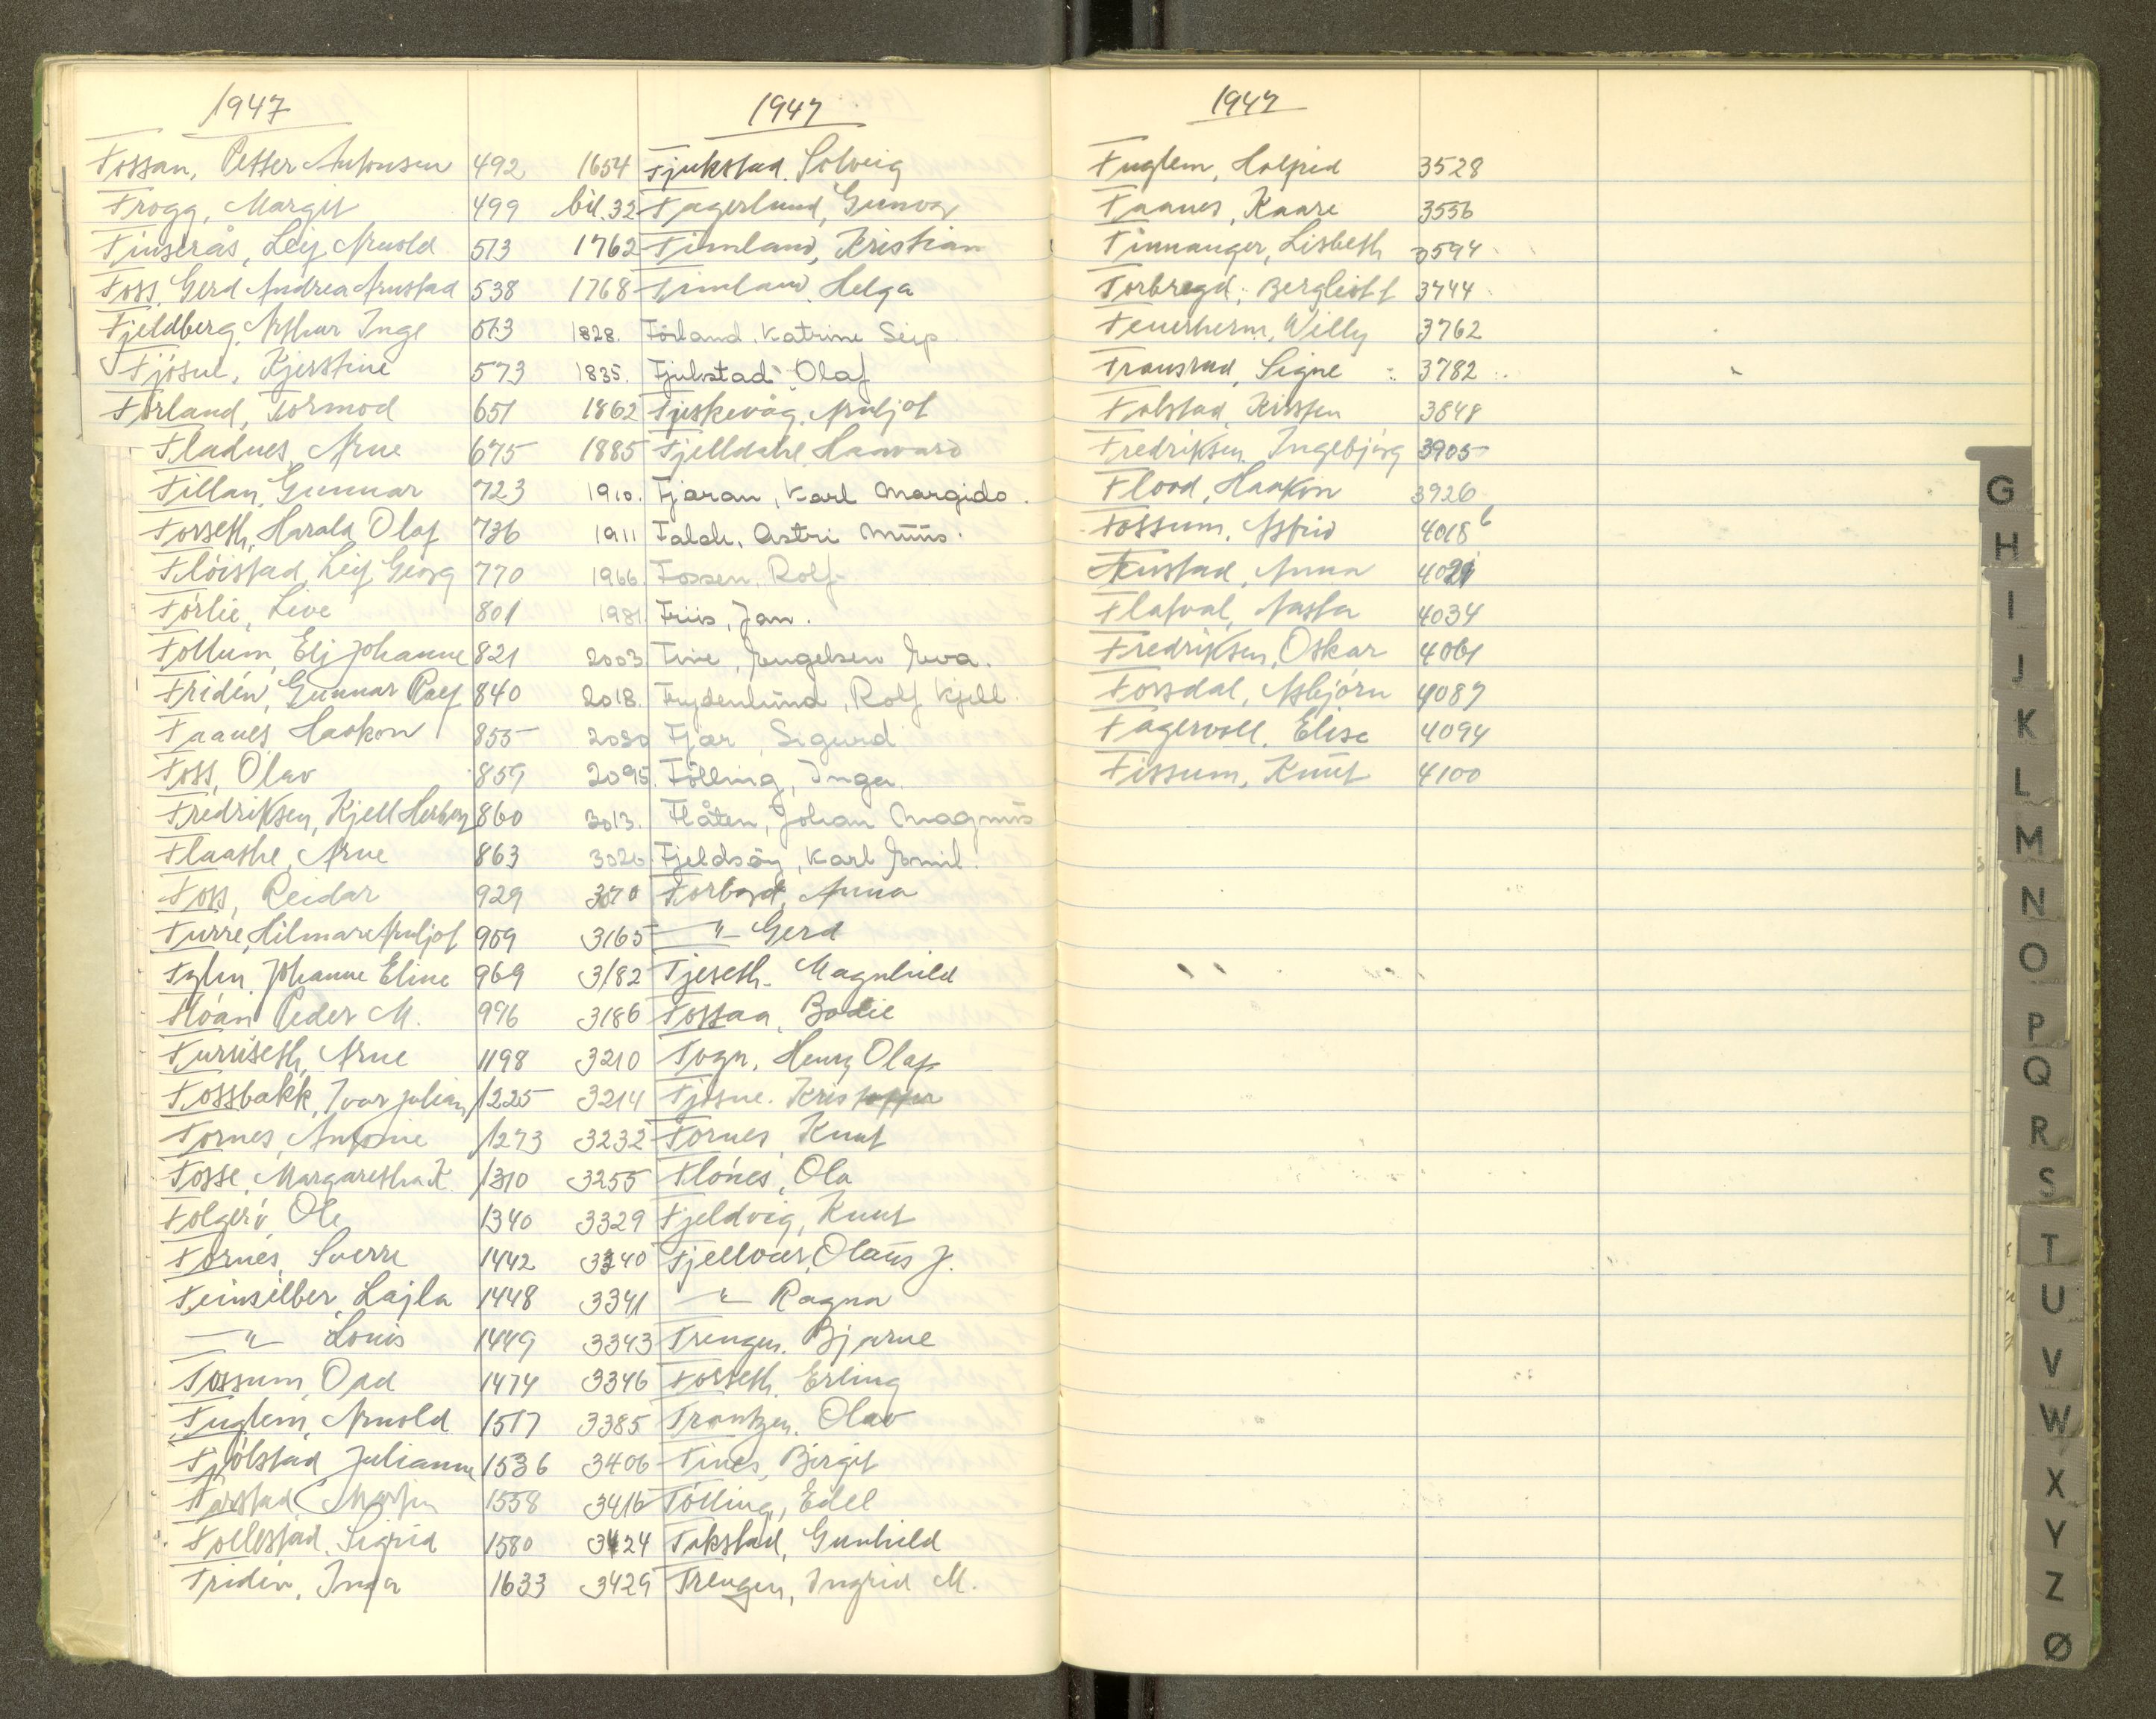 1947
Fossan, Petter Antonsen 492
Frogg, Margit 499
Finserås, Leif Arnold 513
Foss, Gerd Andrea Arnstad 538
Fjeldberg, Arthur Inge 563
Fjøsne, Kjerstine 573
Førland, Tormod 651
Fladnes, Arne 675
Fillan, Gunnar 723
Forseth, Harald Olaf 736
Fløistad, Leif Georg 770
Førlie, Live 801
Follum, Eli Johanne 821
Fridén, Gunnar Ralf 840
Faanes, Haakon 855
Foss, Olav 859
Fredriksen, Kjell 860
Flaathe, Arne 863
Foss, Reidar 929
Furre, Hilmar Arnljot 959
Johanne Eline 969
Floan, Peder M. 996
Furuseth, Arne 1198
Fossbakk, Ivar Julian 1225
Fornes, Antonie 1273
Fosse, Margaretha K. 1310
Folgerø, Ole 1340
Fornes, Sverre 1442
Feinsilber, Lajla 1448
—"— Louis 1449
Fossum, Odd 1474
Fuglem, Arnold 1517
Fjølstad, Julianne 1536
Farstad, 1558
Follestad, Sigrid 1580
Fridén, Inga 1633
1947
1654 Fjukstad, Solveig
bil. 32 Fagerlund, Gunvor
1762 Fimland, Kristian
1768 Fimland, Helga
1828. Förland, Katrine Seip.
1835. Fjukstad, Olaf
1862 Fjeskevåg, Arnljot
1885 Fjelldahl, Haavard
1910. Fjæran, Karl Margido.
1911 Falch, Astri Müüs.
1966. Fossen, Rolf.
1981 Friis, Jan.
2003 Fine, Engelsen Eva.
2018. Frydenlund, Rolf Kjell.
2080 Fjær, Sigurd
2095. Fölling, Inga.
3013. Flåten, Johan Magnüs
3026. Fjeldsöy, Karl Emil.
3070 Forbord, Anna
3165 —"— Gerd
3182 Fjeseth, Magnhild
3186 Fossaa, Bodil
3210 Fogn, Henry Olaf
3214 Fjøsne, Kristoffer
3232 Fornes, Knut
3255 Flønes, Ola
3329 Fjeldvig, Knut
3340 Fjellvær, Olaüs J.
3341 —"— Ragna
3343 Frengen, Bjarne
3346 Forseth, Erling
3385 Frantzen, Olav
3406 Fines, Birgit
3416 Følling, Edel
3424 Fokstad, Gunhild
3429 Frengen, Ingrid M.
1947
Fuglem, Halfrid 3528
Faanes, Kaare 3556
Finnanger, Lisbeth 3594
Forbregd, Bergliott 3744
Feuerherm, Willy 3762
Framstad, Signe 3782
Folstad, Kirsten 3848
Fredriksen, Ingebjörg 3905
Flood, Haakon 3926
Fossum, Astrid 4018 b
Anna 4021
Flatval, Aasta 4034
Fredriksen, Oskar 4061
Forsdal, Asbjørn 4087
Fagervoll, Elise 4094
Fissum, Knüt 4100
G
H
I
J
K
L
M
N
O
P
Q
R
S
T
U
V
W
X
Y
Z
Ø